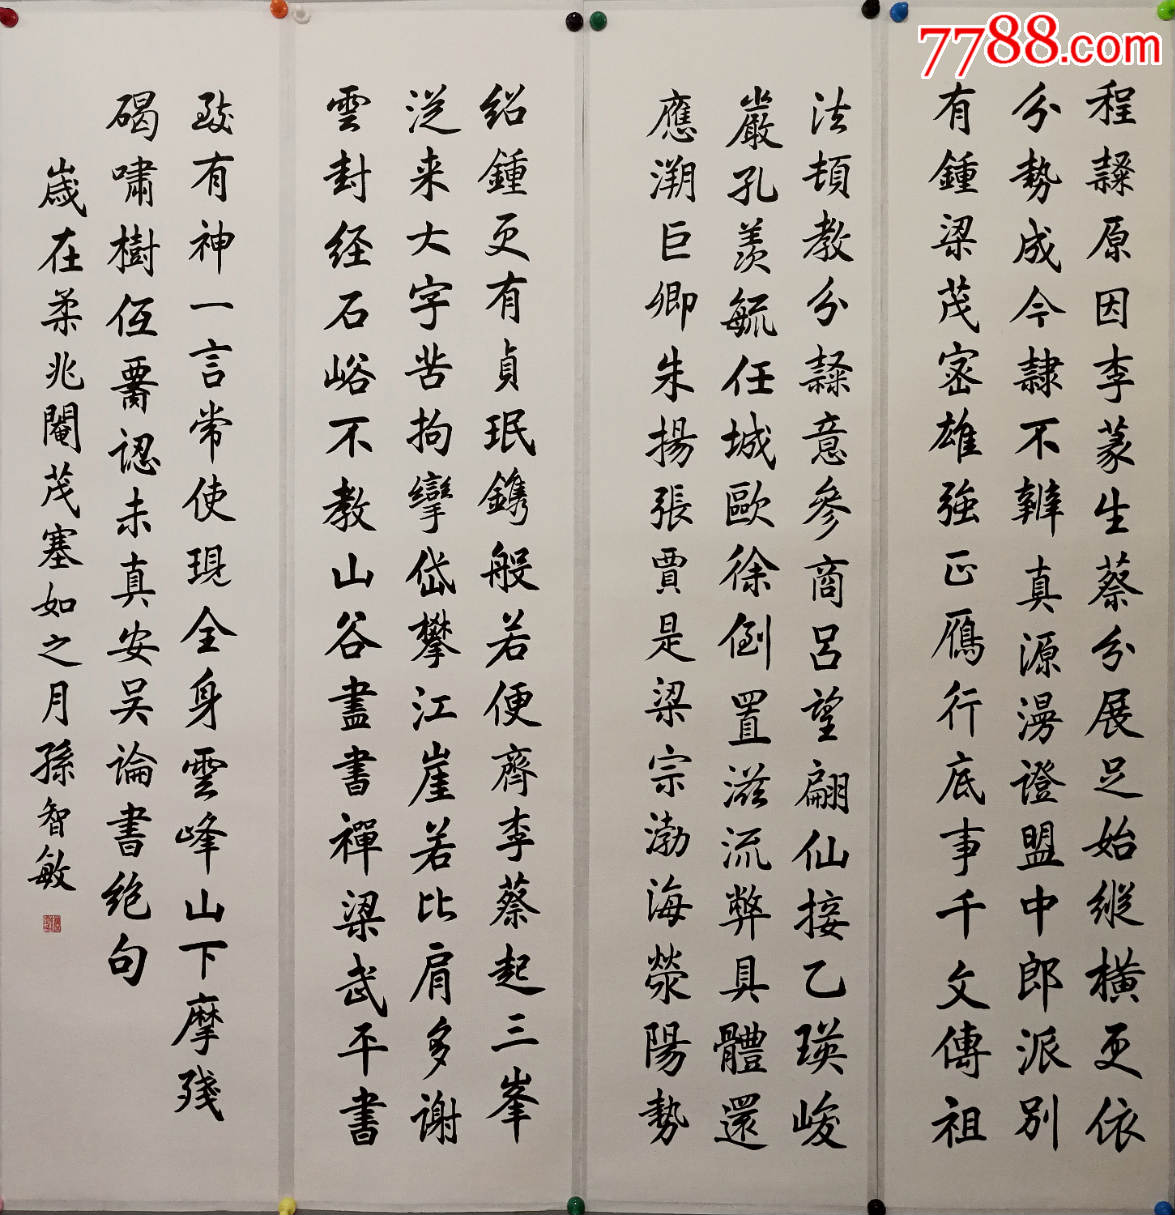 7788.com
程隸原因李篆生蔡分展足始縱橫更依
分勢成今隸不辨真源漫證盟中郎派別
有鍾梁茂密雄強正雁行底事千文傳祖
法頓教分隸意參商呂望翩仙接乙瑛峻
嚴孔羨毓任城歐徐倒置滋流弊具體還
應溯巨卿朱揚張賈是梁宗渤海滎陽勢
紹鍾更有貞珉鐫般若便齊李蔡起三峯
從来大字苦拘攣岱攀江崖若比肩多谢
雲封经石峪不教山谷盡書禪梁武平書
致有神一言常使現全身雲峰山下摩残
碣嘯樹低鬌認未真安吴論書绝句
歲在柔兆閹茂塞如之月孫智敏